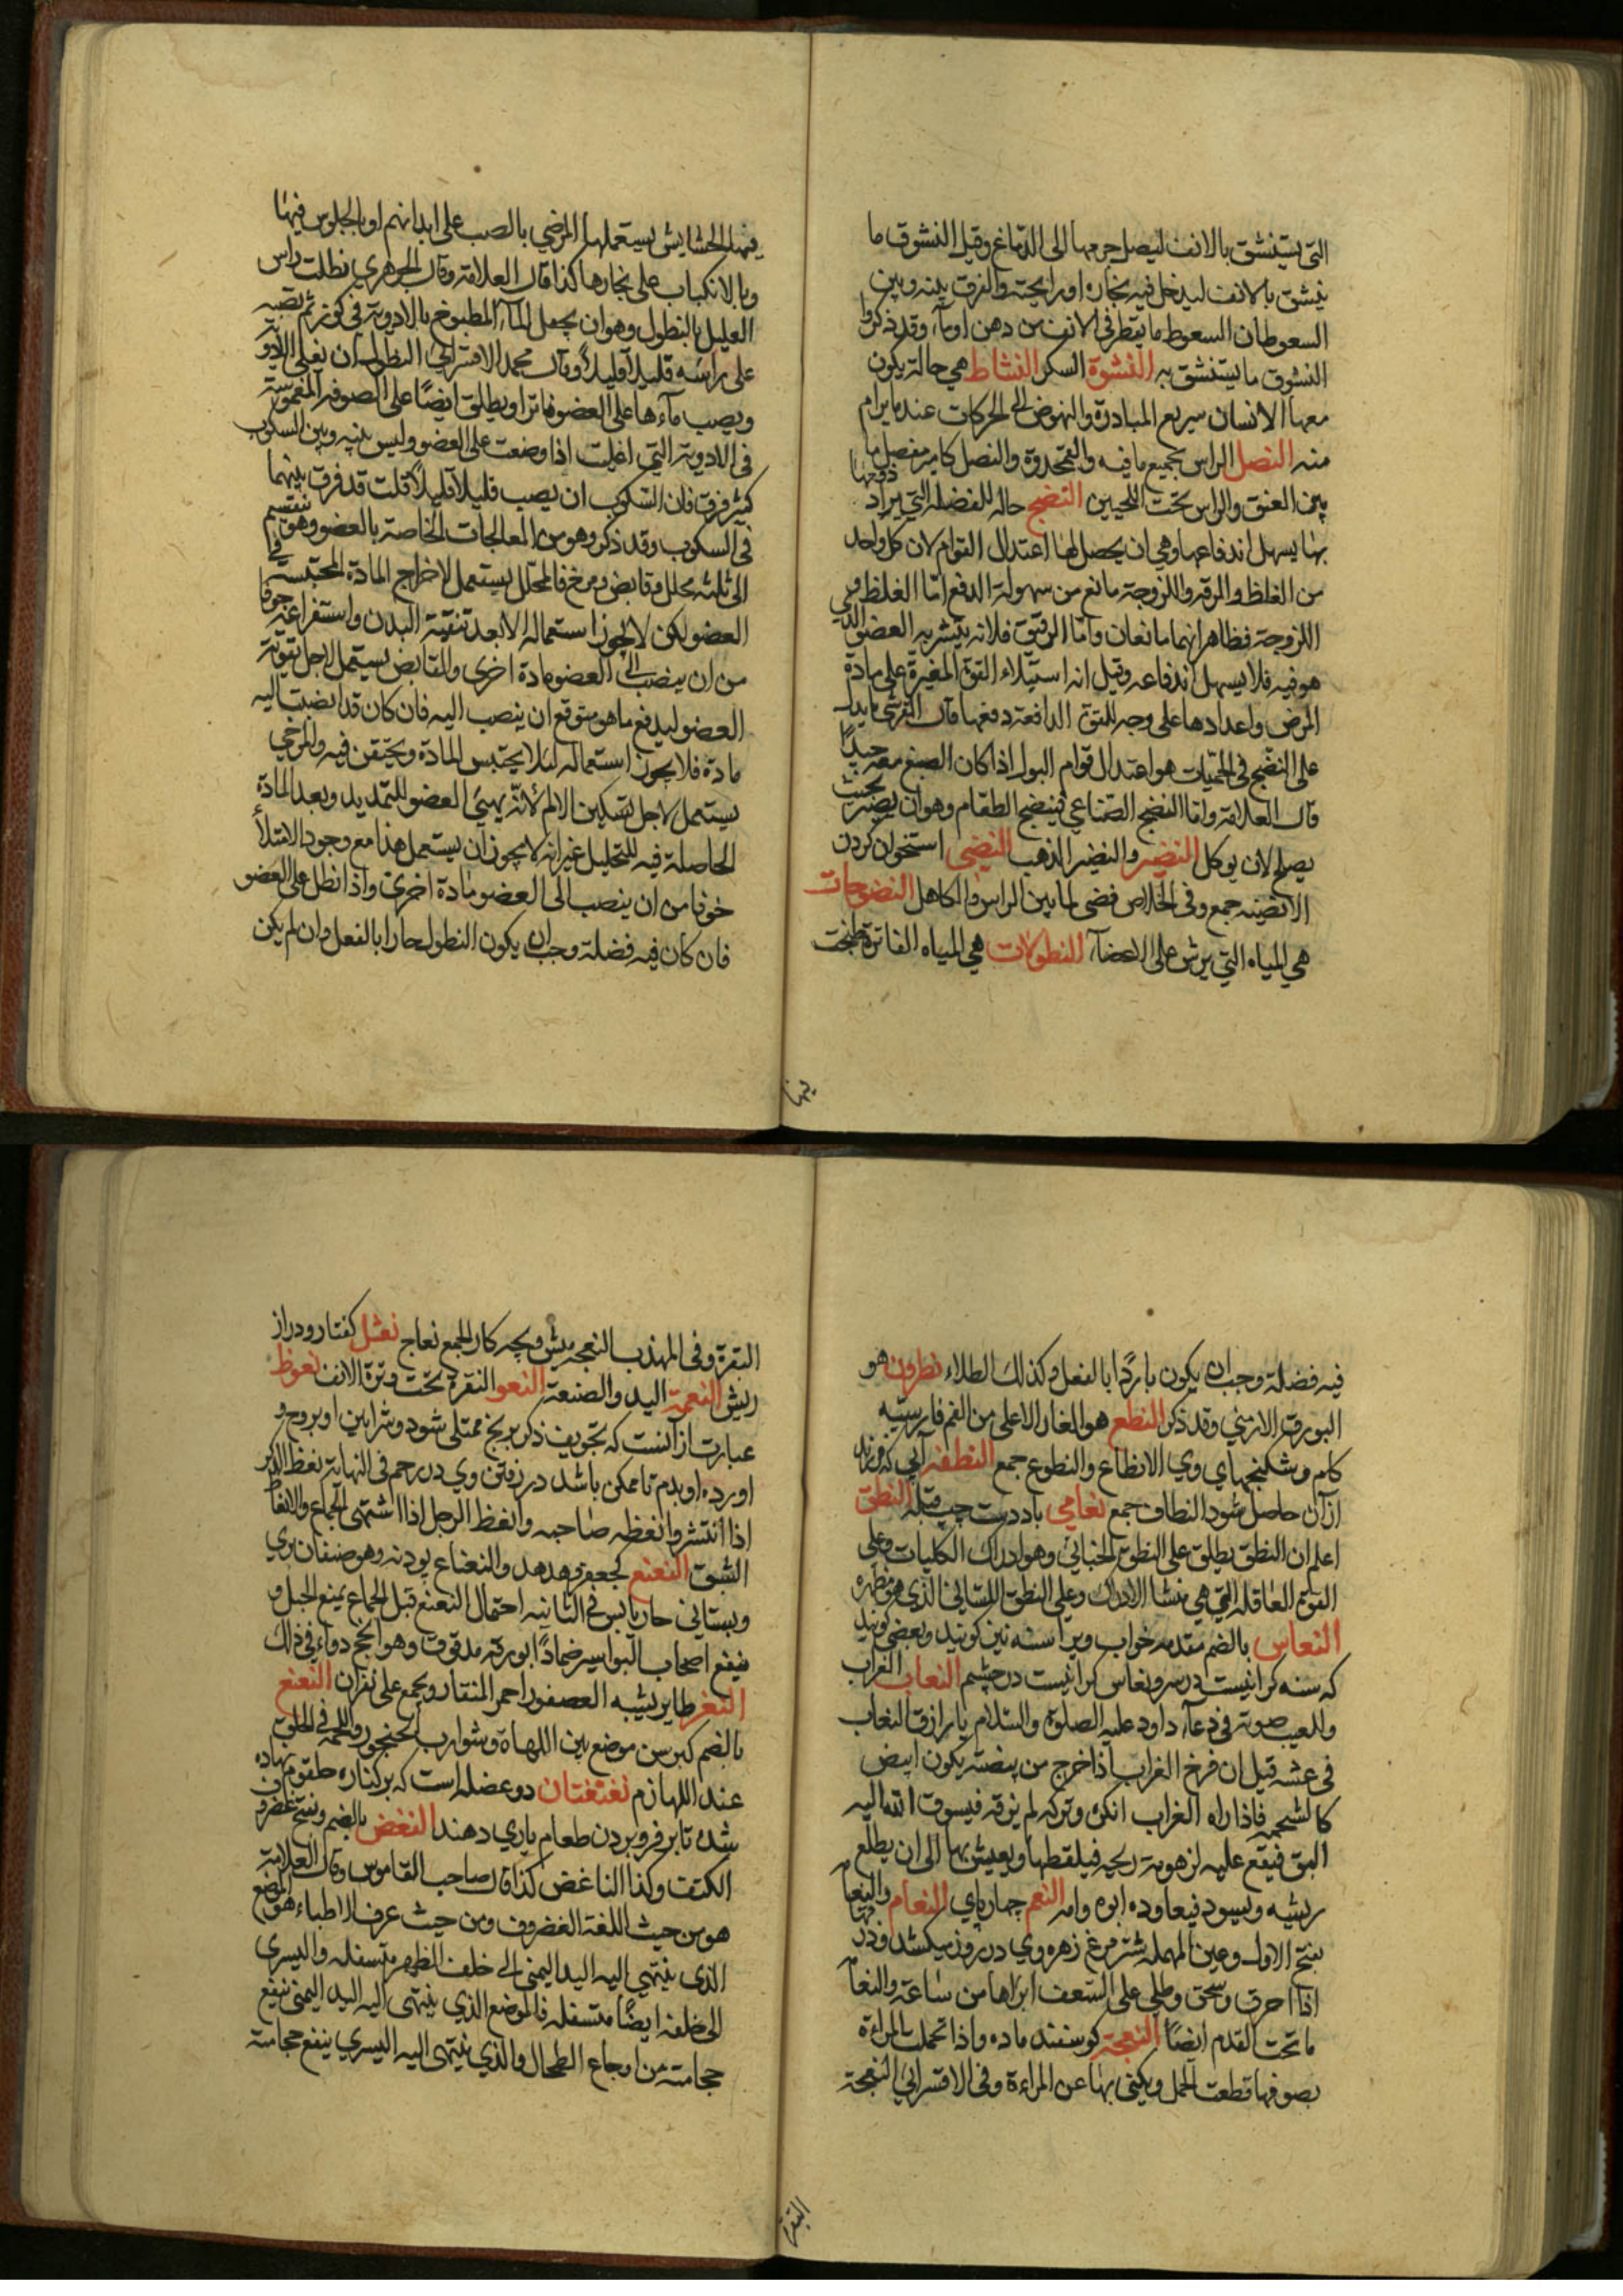 التی یستنشق بالانف لیصل جرمها الی الدماغ وقیل النشوق ما
ینشق بالانف لیدخل فیه بخاره او رایحته والفرق بینه وبین
السعوط ان السعوط ما یقطر فی الانف من دهن او ماء وقد ذکروا
النشوق ما یستنشق به النشوة السکر النشاط هی حالة یکون
معها الانسان سریع المبادرة والنهوض الی الحرکات عند ما یرام
منه النصل الراس بجمیع ما فیه والقمحدوة والنصل کامیر مفصل ما
بین العنق والراس تحت اللحیین النضج حالة للفضلة التی یراد دفعها
بها یسهل اندفاعها وهی ان یحصل لها اعتدال القوام لان کل واحد
من الغلظ والرقة واللزوجة مانع من سهولة الدفع امّا الغلظ و
اللزوجة فظاهر انهما مانعان وامّا الرقیق فلانه یتشربه العضو الذی
هو فیه فلا یسهل اندفاعه وقیل انه استیلاء القوة المغیرة علی مادة
المرض واعدادها علی وجه للقوة الدافعة دفعها قال القرشی ما یدل
علی النضج فی الحمّیات هو اعتدال قوام البول اذا کان الصبغ معه جیداً
قال العلامة وامّا النضج الصناعی فنضج الطعام وهو ان یصیر بحیث
یصلح لان یوکل النضیر والنضیر الذهب النضی استخوان کردن
الانضیه جمع وفی الخلاص فضی لما بین الراس والکاهل النضوحات
هی المیاه التی یرش علی الاعضاء النطولات هی المیاه الفاترة طبخت
یها
فیها الحشایش یستعملها المرضی بالصب علی ابدانهم او بالجلوس فیها
وبالانکباب علی بخارها کذا قال العلامة وقال الجوهری نطلت راس
العلیل بالنطول وهو ان یجعل الماء المطبوخ بالادویة فی کوز ثم تصبه
علی راسه قلیلاً قلیلاً وقال محمد الاقسرائی النطول ان یغلی الادویة
ویصب ماءها علی العضو فاترا ویطلق ایضًا علی الصوفة المغموسة
فی الادویة التی اغلیت اذا وضعت علی العضو ولیس بینه وبین السکوب
کثیر فرق فان السکوب ان یصب قلیلاً قلیلاً قلت قد فرق بینهما
فی السکوب وقد ذکر وهو من المعالجات الخاصة بالعضو وهو ینقسم
الی ثلثه محلل وقابض ومرخ فالمحلل یستعمل لاخراج المادة المحتبسة فی
العضو لکن لا یجوز استعماله الا بعد تنقیة البدن واستفراغه خوفا
من ان ینصب الی العضو مادة اخری والقابض یستعمل لاجل تقویة
العضو لیدفع ما هو متوقع ان ینصب الیه فان کان قد انصبت الیه
مادة فلا یجوز استعماله لئلا یحتبس المادة ویحتقن فیه والمرخی
یستعمل لاجل تسکین الالم لانّه یهیئ العضو للتمدید وبعد المادة
الحاصلة فیه للتحلیل غیر انه لا یجوز ان یستعمل هذا مع وجود الامتلاء
خوفا من ان ینصب الی العضو مادة اخری واذا نطل علی العضو
فان کان فیه فضلة وجب ان یکون النطول حارا بالفعل وان لم یکن
فیه فضلة وجب ان یکون باردًا بالفعل وکذلک الطلاء نطرون هو
البورق الارمنی وقد ذکر النطع هو الغار الاعلی من الفم فارسیته
کام وشکنجهای وی الانطاع والنطوع جمع النطفه آبی که فرزند
از آن حاصل شود النطاف جمع نعامی باد دست چپ قبله النطق
اعلم ان النطق یطلق علی النطق الجنانی وهو ادراک الکلیات وعلی
القوة العاقلة التی هی منشا الادراک وعلی النطق اللسانی الذی هو مظهره
النعاس بالضم مقدمه خواب ویرا سنه نیز کویند وبعضی کویند
که سنه کرانیست در سر ونعاس کرانیست در چشم النعاب الغراب
والنعیب صوته فی دعاء داود علیه الصلوة والسّلام یا رازق النعاب
فی عشه قیل ان فرخ الغراب اذا خرج من بیضته یکون ابیض
کالشحمة فاذا راه الغراب انکره وترکه لم یزقه فیسوق الله الیه
البق فیقع علیه لزهومة ریحه فیلقطها ویعیش بها الی ان یطلع
ریشه ویسود فیعاوده ابوه وامه النعم چهارپای النعام والنعامة
بفتح الاول وعین المهملة شتر مرغ زهره وی در روز میکشد
اذا احرق وسحق وطلی علی السعف ابراها من ساعة والنعام
ما تحت القدم ایضًا النعجة کوسفند ماده واذا تحملت المراءة
بصوفها قطعت الحمل ویکنی بها عن المراءة وفی الاقسرائی النعجة
البقر
البقرة وفی المهذب النعجه میش وبچه کار الجمع نعاج نعثل کفتار و دراز
ریش النعمة الید والصنعة النعو النقرة تحت وترة الانف نعوظ
عبارت از آنست که تجویف ذکر بریح ممتلی شود وشرایین او بروح و
اورده او بدم تا ممکن باشد در رفتن وی در رحم فی النهایة نعظ الذکر
اذا انتشر وانعظه صاحبه وانعظ الرجل اذا اشتهی الجماع والانعاظ
الشبق النعنع کجعفر وهدهد والنعناع پودنه وهو صنفان بری
وبستانی حار یابس فی الثانیه احتمال النعنع قبل الجماع یمنع الحبل و
ینفع اصحاب البواسیر ضمادًا بورقه مدقوق وهو انجح دواء فی ذلک
النغر طایر یشبه العصفور احمر المنقار ویجمع علی نغران النغنغ
بالضم کبرسن موضع بین اللهاة وشوارب الحنجور واللحمة فی الحلق
عند اللهازم نغنغتان دو عضله است که بر کناره حلقوم نهاده
شده تا بر فرو بردن طعام یاری دهند النغض بالضم ویفتح غضروف
الکتف وکذا الناغض کذا قال صاحب القاموس وقال العلامة
هو من حیث اللغة الغضروف ومن حیث عرف الاطباء هو الموضع
الذی ینتهی الیه الید الیمنی الی خلف الظهر متسفله والیسری
الی خلفه ایضًا متسفله فالموضع الذی ینتهی الیه الید الیمنی ینفع
حجامته من اوجاع الطحال والذی ینتهی الیه الیسری ینفع حجامته